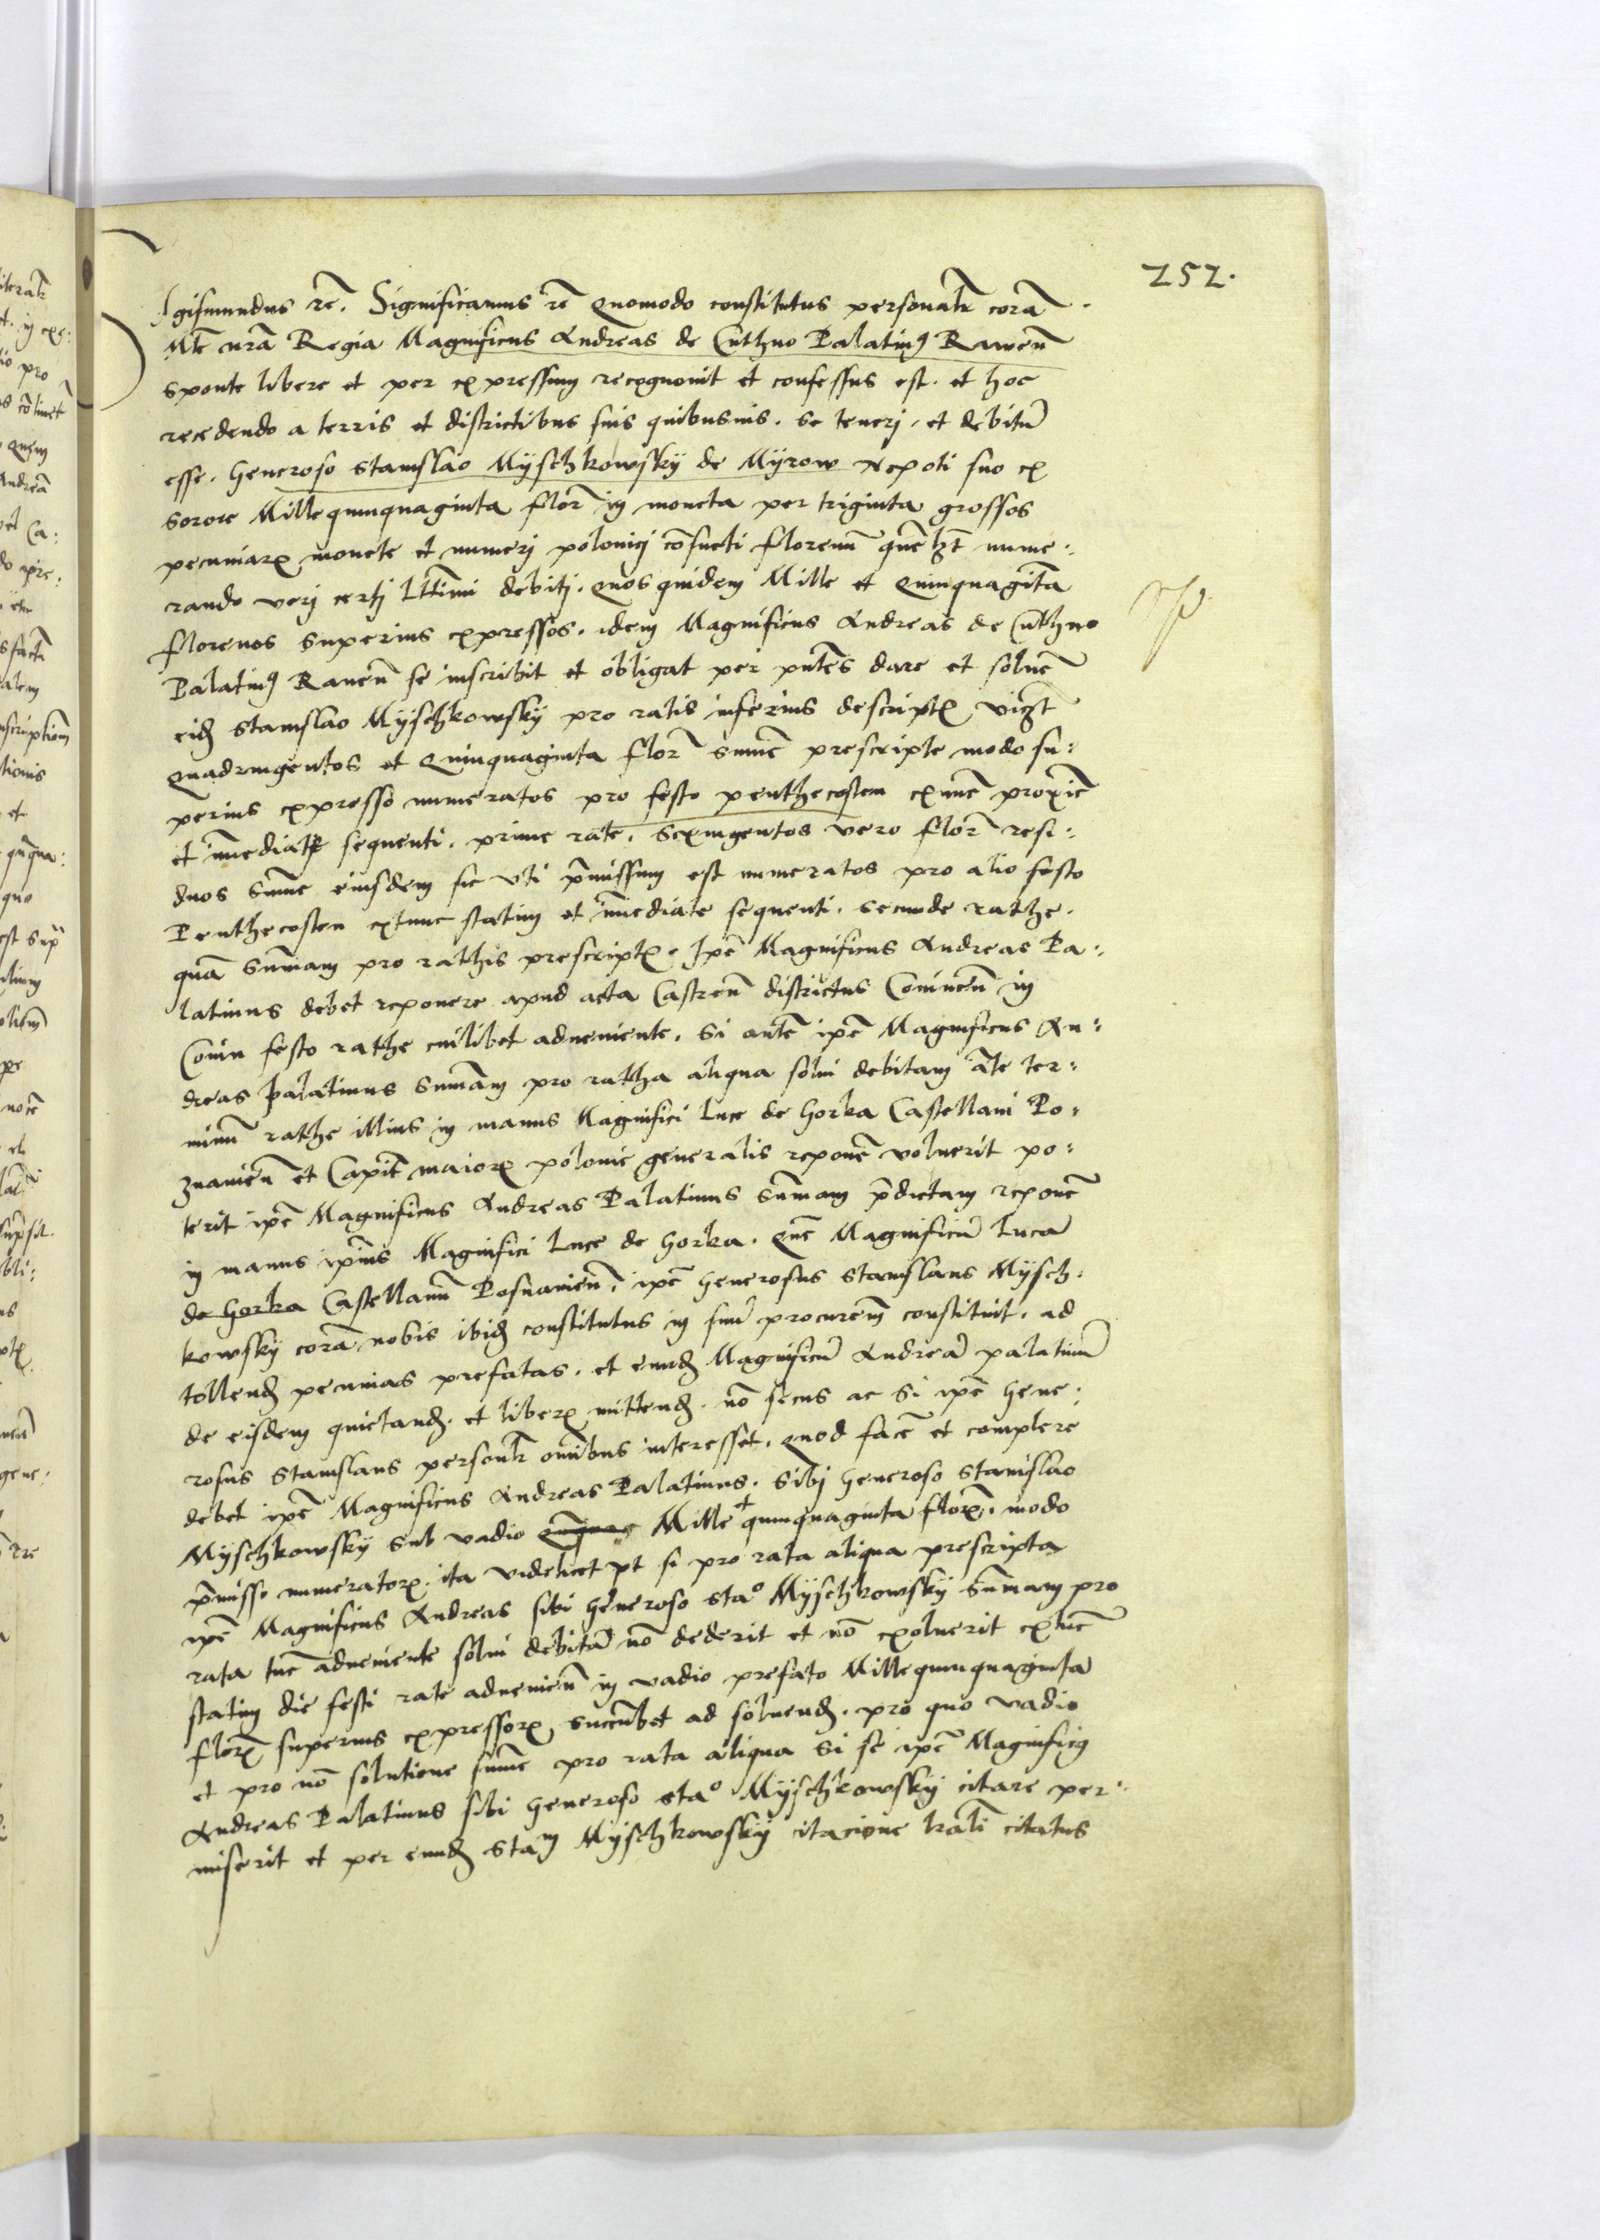 252.
Sigismundus rc̄. Significamus rc̄ Quomodo constitutus personalr̄ corā
Mte nrā Regia Magnificus Andreas de Cuthno Palatinꝰ Raweñ
sponte libere et per expressum recognovit et confessus est. et hoc
recedendo a terris et districtibus suis quibusuis. se tenerj. et debitū
esse. Generoso Stanislao Mÿschkowskÿ de Mÿrow Nepoti suo ex
sorore Mille quinquaginta flor̄ in moneta per triginta grossos
pecuniarꝫ monete et numerj polonicj cōsueti florenū quēlꝫt nume:
rando verj certj lttīmi debitj. Quos quidem Mille et Quinquagīta
florenos superius expressos. idem Magnificus Andreas de Cuthno
Palatinꝰ Raueñ se inscribit et obligat per pn̄tes dare et soluē
eidꝫ Stanislao Mÿschkowskÿ pro ratis inferius descriptꝫ vicꝫt
Quadringentos et Quinquaginta flor̄ sūme prescripte modo su:
perius expresso numeratos pro festo penthecosten exnūc proxīe
et īmediate sequenti. prime rate. Sexingentos vero flor̄ resi:
duos sūme eiusdem sic vti p̄missum est numeratos pro alio festo
Penthecosten extunc statim et īmediate sequenti. secunde rathe.
quā sūmam pro rathis prescriptꝫ. Ipē Magnificus Andreas Pa:
latinus debet reponere apud acta Castreñ districtus Conineñ in
Conin festo rathe cuilibet adueniente. Si autē ipē Magnificus An:
dreas palatinus sūmam pro ratha aliqua solui debitam ān̄te ter:
minū rathe illius in manus Magnifici Luce de Gorka Castellani Po:
znanieñ et Capitͤ maiorꝫ polonie generalis reponē voluerit po:
terit ipē Magnificus Andreas Palatinus sūmam p̄dictam reponē
in manus ipīus Magnifici Luce de Gorka. Quē Magnificū Lucā
de Gorka Castellanū Posnanieñ. ipē Generosus Stanislaus Mÿsch:
kowskÿ corā nobis ibidꝫ constitutus in suū procurem̄ constituit. ad
tollendꝫ pecunias prefatas. et eundꝫ Magnificū Andreā palatinū
de eisdem quietandꝫ. et liberꝫ mittendꝫ. nō secus ac si ipē Gene:
rosus Stanislaus personlr̄ om̄ibus interesset. Quod facē et complere
debet ipē Magnificus Andreas Palatinus. Sibj Generoso Stanislao
Mÿschkowskÿ sub vadio Mille + quinquaginta florꝫ. modo
p̄misso numeratorꝫ. ita videlicet vt si pro rata aliqua prescripta
ipē Magnificus Andreas sibi Generoso Staº Mÿschkowskÿ sūmam pro
rata tūc adueniente solui debitā nō dederit et nō exoluerit extūc
statim die festi rate adueniēn in vadio prefato Mille quinquaginta
florꝫ superius expressorꝫ succūbet ad soluendꝫ. pro quo vadio
et pro nō solutione sūme pro rata aliqua si se ipē Magnificꝰ
Andreas Palatinus sibi Generoso Staº Mÿschkowskÿ citare per:
miserit et per eundꝫ Stam Mÿschkowskÿ citacione lrāli citatus